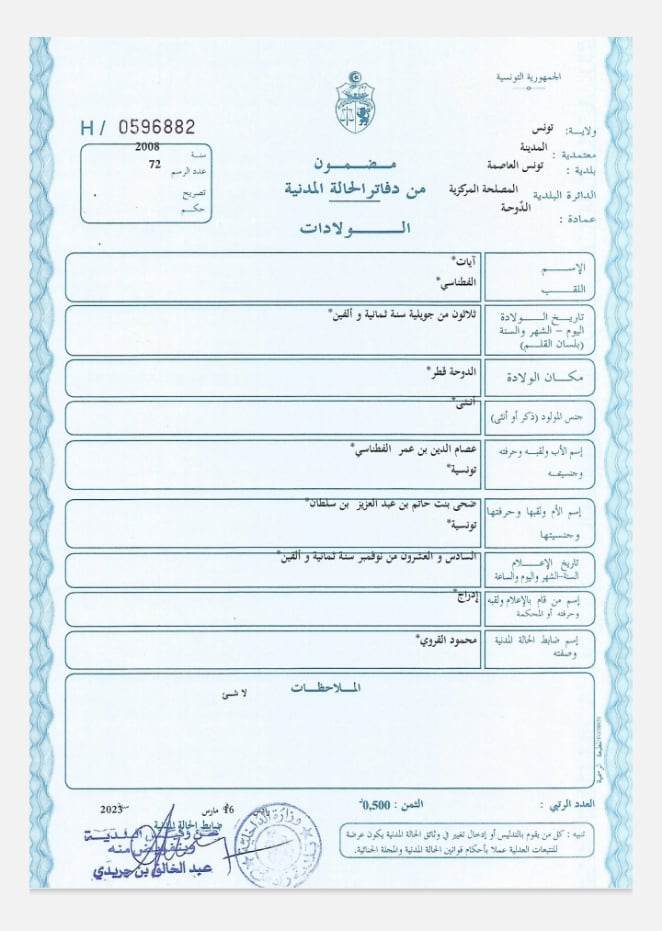 الجمهورية التونسية
H / 0596882
ولاية: تونس
معتمدية : المدينة
بلدية : تونس العاصمة
الدائرة البلدية المصلحة المركزية
عمادة : الدّوحة
سنة 2008
عدد الرسم 72
تصريح
حكم
مضمون
من دفاتر الحالة المدنية
الولادات
الإسم آيات*
اللقب الفطناسي*
تاريخ الولادة ثلاثون من جويلية سنة ثمانية و ألفين*
اليوم – الشهر والسنة
(بلسان القلم)
مكان الولادة الدوحة قطر*
جنس المولود (ذكر أو أنثى) أنثى*
إسم الأب ولقبه وحرفته عصام الدين بن عمر الفطناسي*
وجنسيته تونسية*
إسم الأم ولقبها وحرفتها ضحى بنت حاتم بن عبد العزيز بن سلطان*
وجنسيتها تونسية*
تاريخ الإعلام السادس و العشرون من نوفمبر سنة ثمانية و ألفين*
السنة–الشهر واليوم والساعة
إسم من قام بالإعلام ولقبه إدراج*
وحرفته أو المحكمة
إسم ضابط الحالة المدنية محمود القروي*
وصفته
الملاحظات
لا شئ
العدد الرتبي :
الثمن : 0,500د
16 مارس 2023
ضابط الحالة المدنية
وبتفويض منه
عبد الخالق بن جريدي
وزارة الداخلية
تنبيه : كل من يقوم بالتدليس أو إدخال تغيير في وثائق الحالة المدنية يكون عرضة
للتتبعات العدلية عملا بأحكام قوانين الحالة المدنية والمجلة الجنائية.